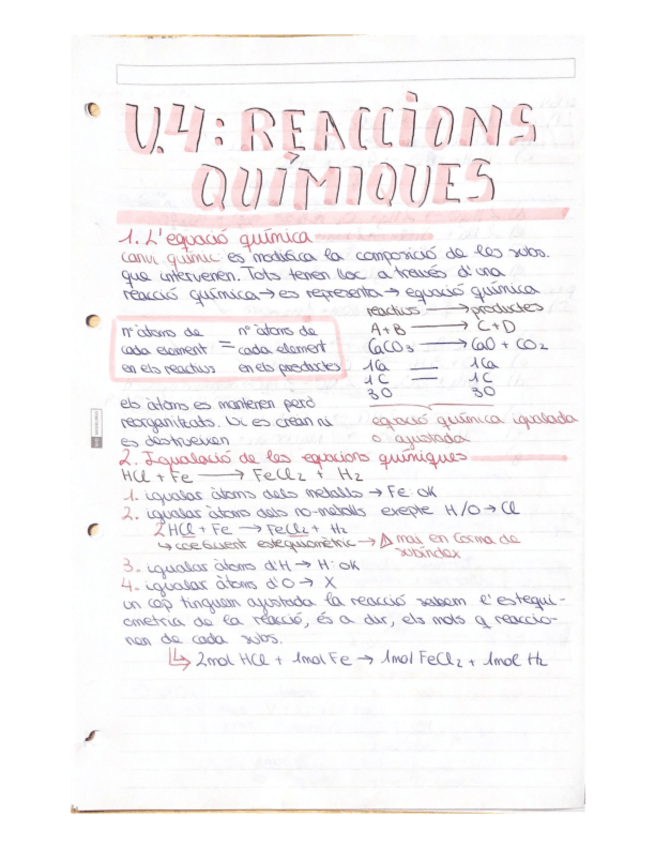 U.4: REACCIONS
QUÍMIQUES
1. L'equació química
Canvi químic: es modifica la composició de les subs.
que intervenen. Tots tenen lloc a través d'una
reacció química → es representa → equació química
reactius → productes
A + B → C + D
CaCO3 → CaO + CO2
1Ca = 1Ca
1C = 1C
3O 3O
nº àtoms de nº àtoms de
cada element = cada element
en els reactius en els productes
els àtoms es mantenen però
reorganitzats. Ni es crean ni
es destrueixen
equació química igualada
o ajustada
2. Igualació de les equacions químiques
HCl + Fe → FeCl2 + H2
1. igualar àtoms dels metalls → Fe: ok
2. igualar àtoms dels no-metalls exepte H/O → Cl
2HCl + Fe → FeCl2 + H2
↳ coeficient estequiomètric → ⚠ mai en forma de
subíndex
3. igualar àtoms d'H → H: ok
4. igualar àtoms d'O → X
un cop tinguem ajustada la reacció sabem l'estequi-
ometria de la reacció, és a dir, els mols q reaccio-
nen de cada subs.
↳ 2mol HCl + 1mol Fe → 1mol FeCl2 + 1mol H2